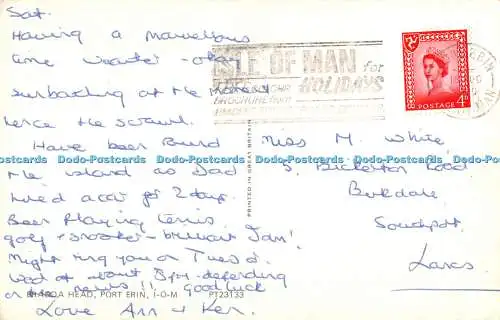 Sat.
Having a marvellous
time weather okay
sunbathing at the moment
hence the scrawl.
Have been round
the island as Dad
hired a car for 2 days.
Been playing tennis
golf + snooker - brilliant Jan!
Might ring you on Tues or
Wed at about 8pm - depending
on the news!! Good luck
Love Ann + Ken.
ISLE OF MAN for
HOLIDAYS
POSTAGE 4D
Miss M. White,
5, Bickerton Road
Birkdale
Southport
Lancs
PRINTED IN GREAT BRITAIN
BRADDA HEAD, PORT ERIN, I-O-M PT23133
Dodo-Postcards Dodo-Postcards Dodo-Postcards Dodo-Postcards Dodo-Postcards